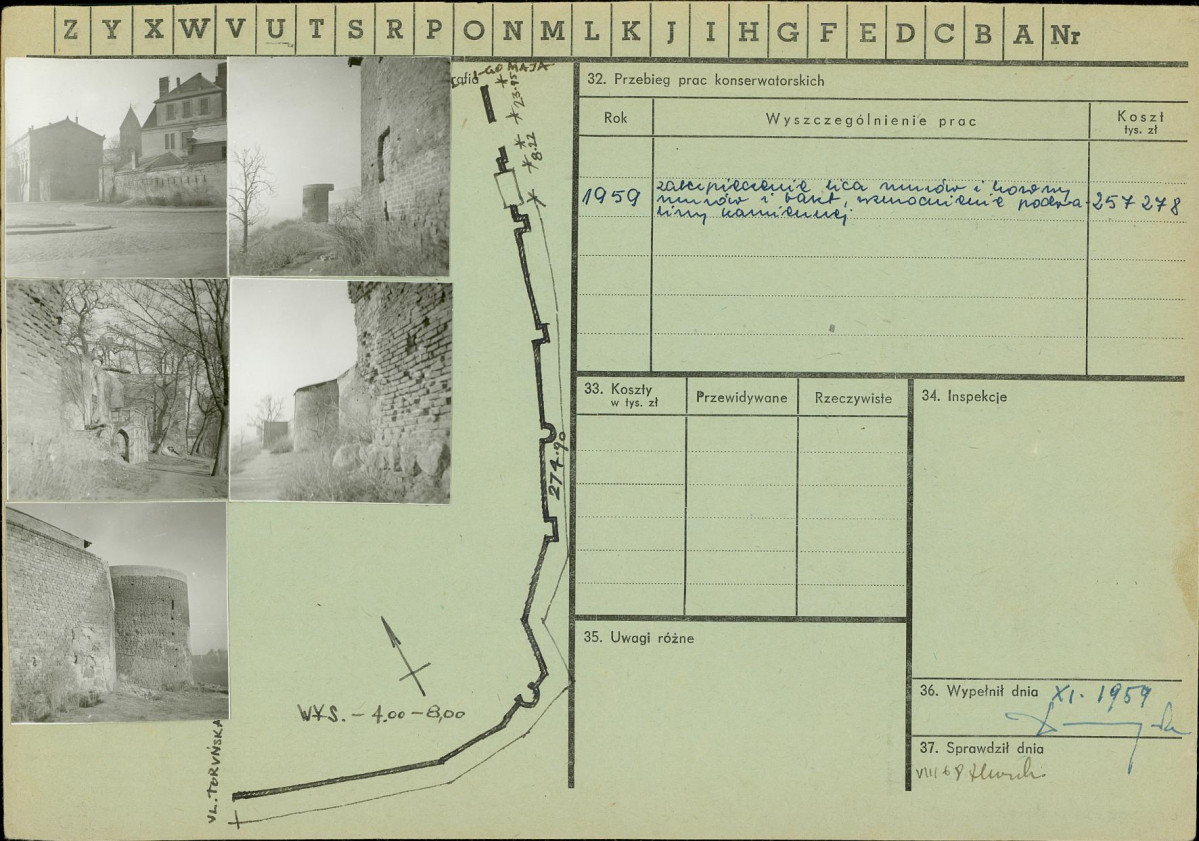 Z Y X W V U T S R P O N M L K J I H G F E D C B A Nr
1-GO MAJA
23.95
8.22
274.90
WYS. - 4.00 - 8,00
UL. TORUŃSKA
32. Przebieg prac konserwatorskich
Rok
Wyszczególnienie prac
Koszt
tys. zł
1959
zabezpieczenie lica murów i korony
murów i baszt, wzmocnienie podwa-
liny kamiennej
257 278
33. Koszty
w tys. zł
Przewidywane
Rzeczywiste
34. Inspekcje
35. Uwagi różne
36. Wypełnił dnia XI. 1959
37. Sprawdził dnia
VIII 68